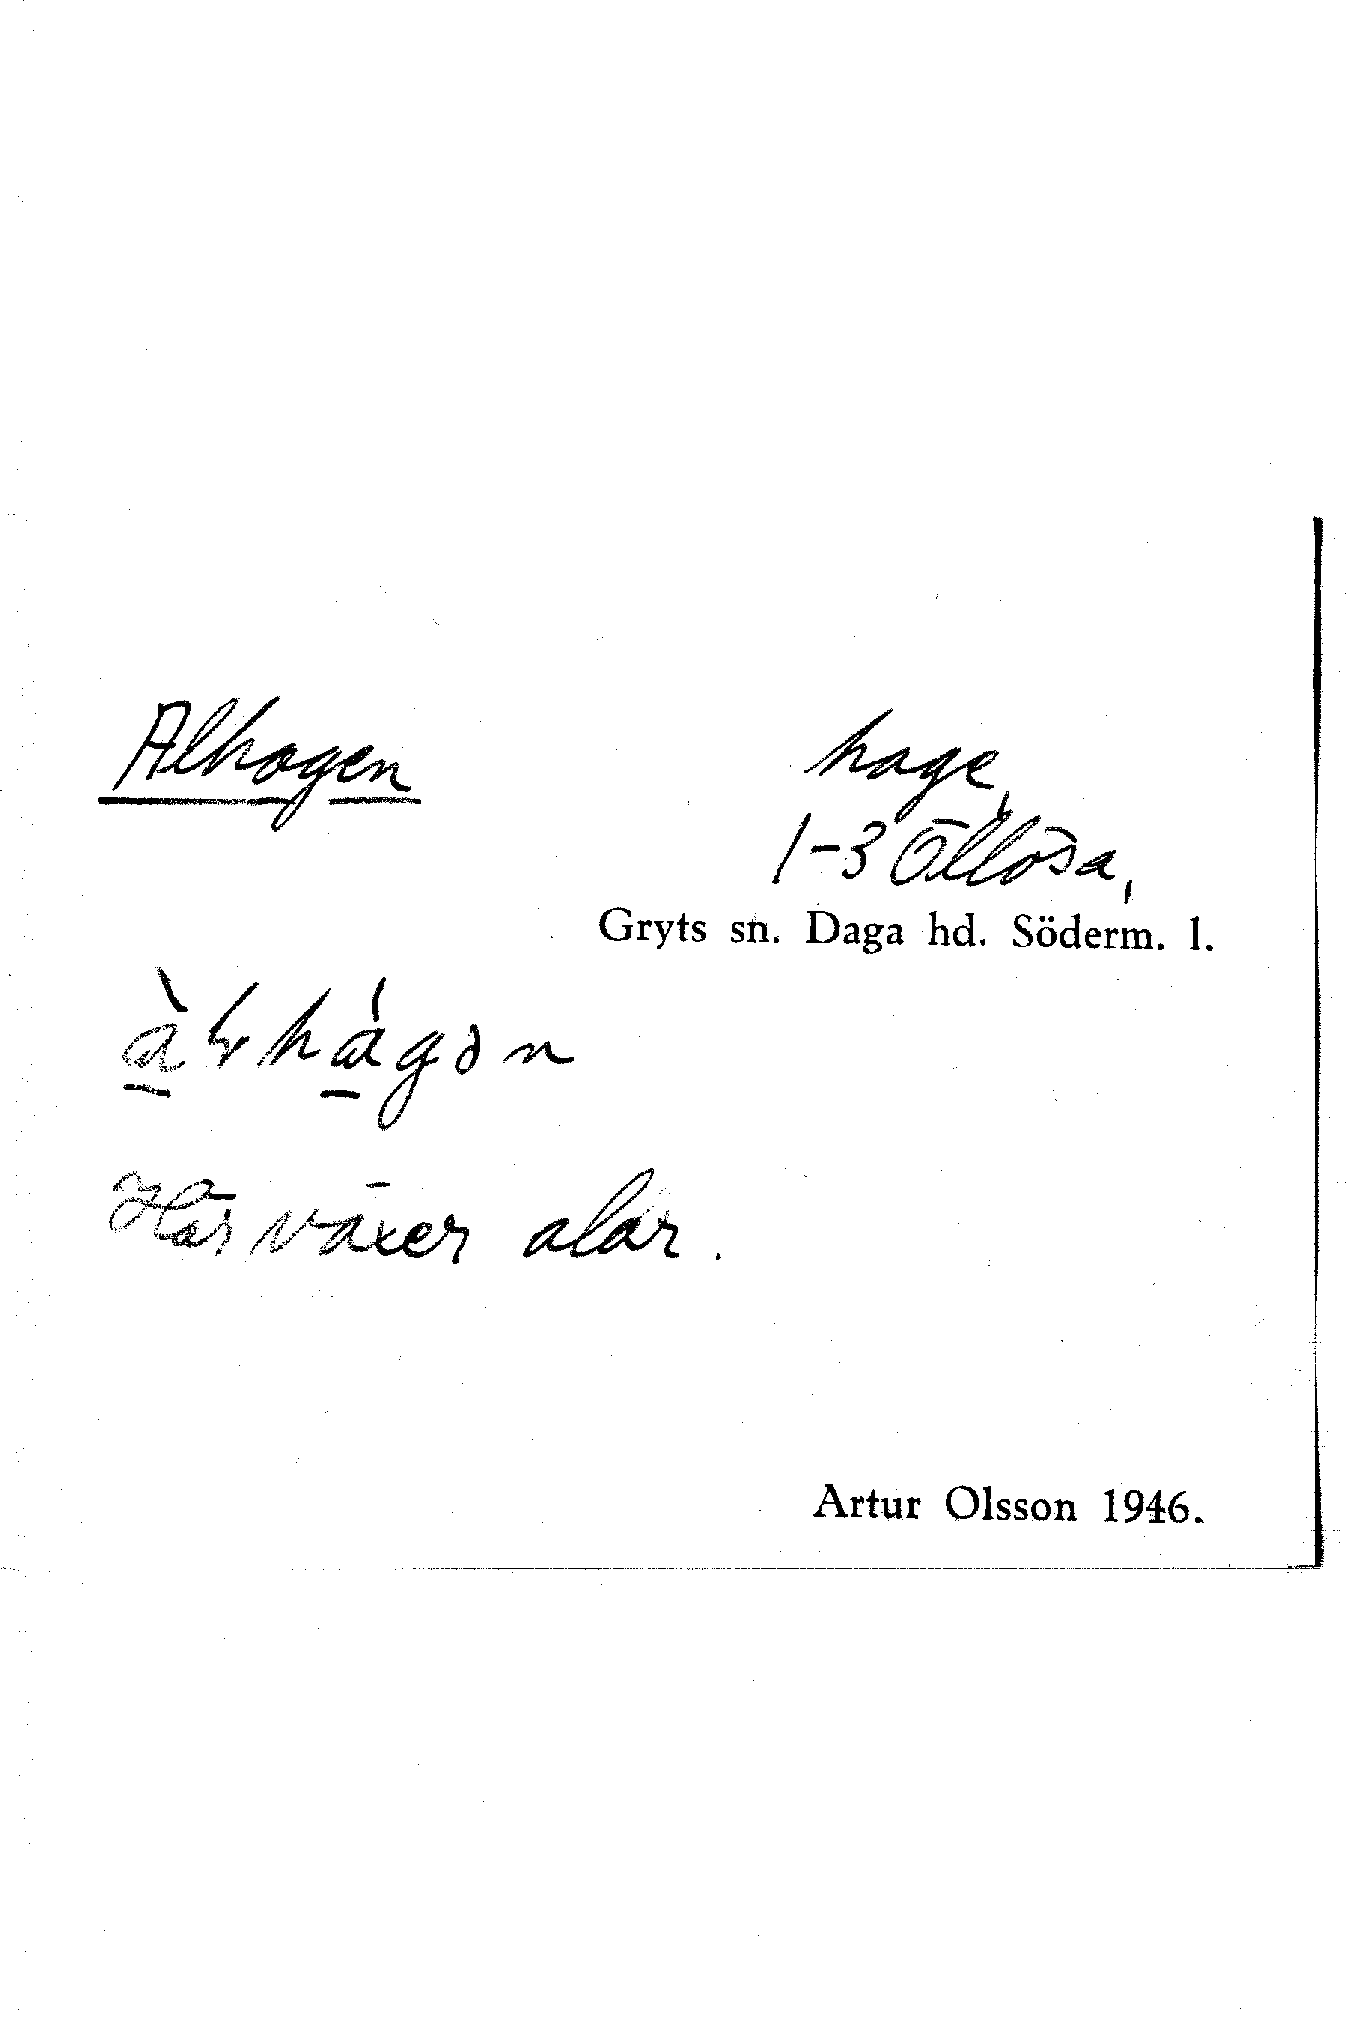 Alhagen
hage,
1-3 Öllösa,
Gryts sn. Daga hd. Söderm. l.
Här växer alar.
Artur Olsson 1946.